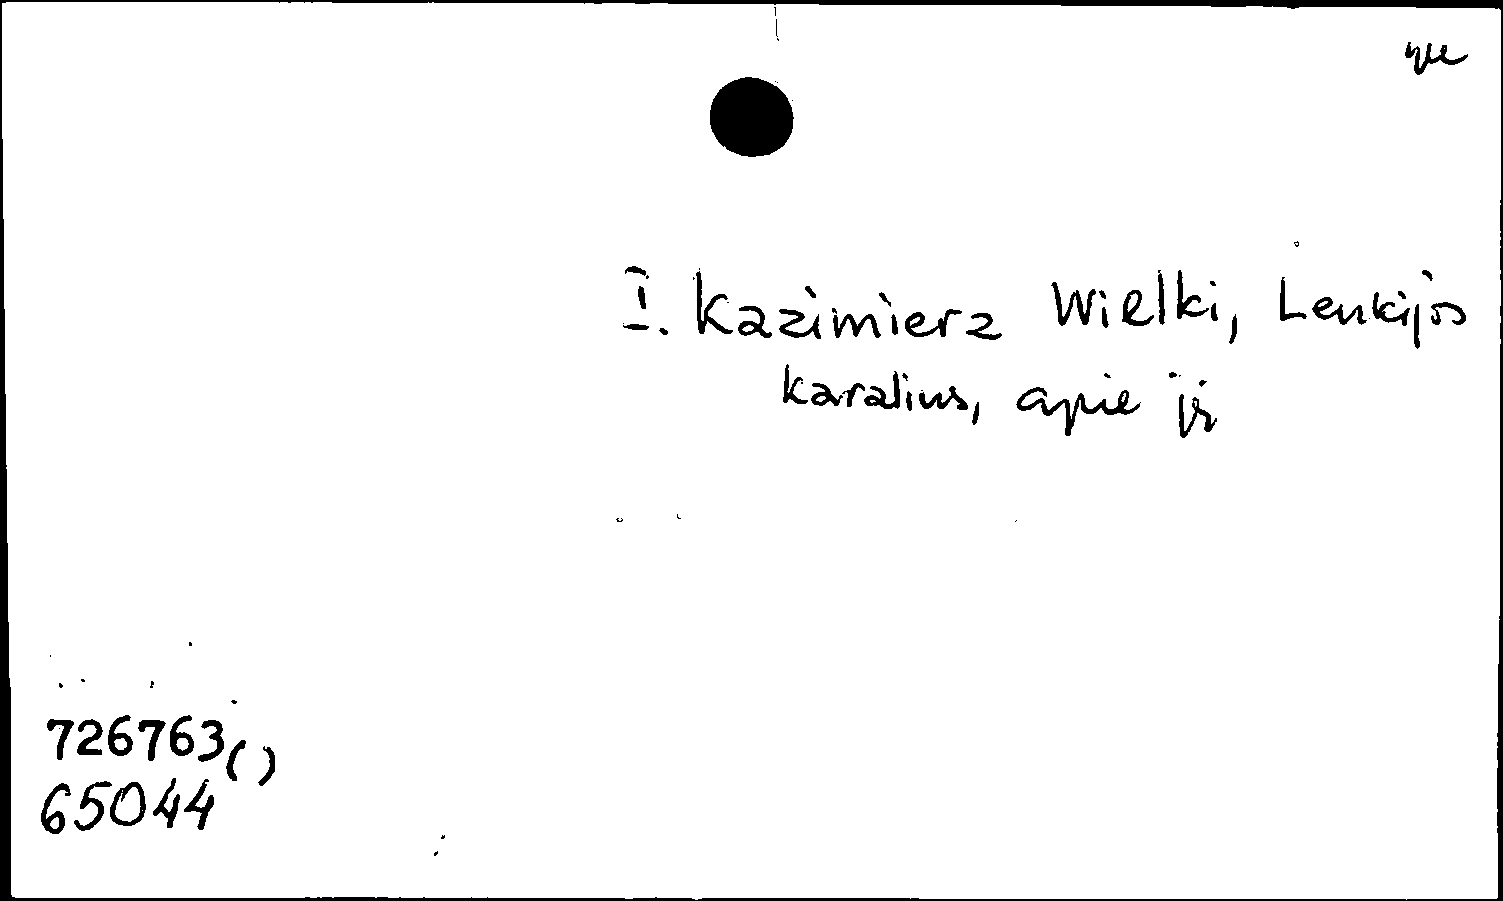 I. Kazimierz Wielki, Lenkijos
karalius, apie jį
726763()
65044